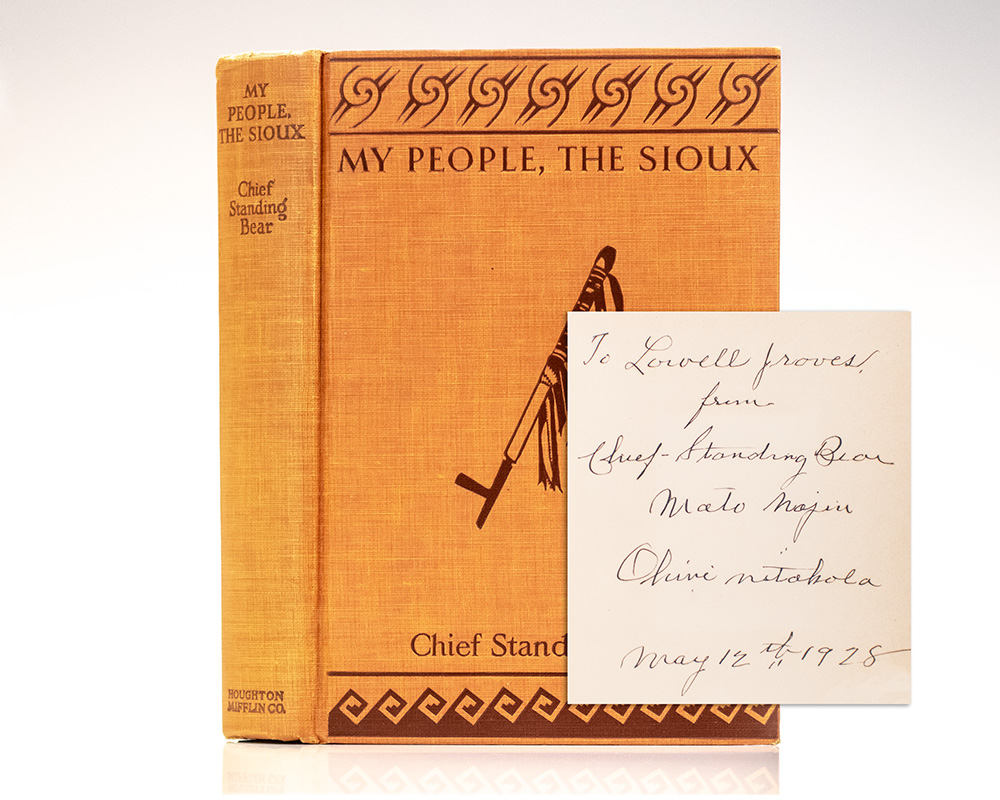 MY
PEOPLE,
THE SIOUX
Chief
Standing
Bear
HOUGHTON
MIFFLIN CO.
MY PEOPLE, THE SIOUX
Chief Stand
To Lowell Groves,
from
Chief-Standing Bear
Mato Najin
Ohini nitakola
May 12th 1928